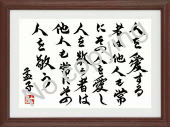 人を愛する
者は他人も常
にその人を愛し
人を敬う者は
他人も常にその
人を敬う。
孟子